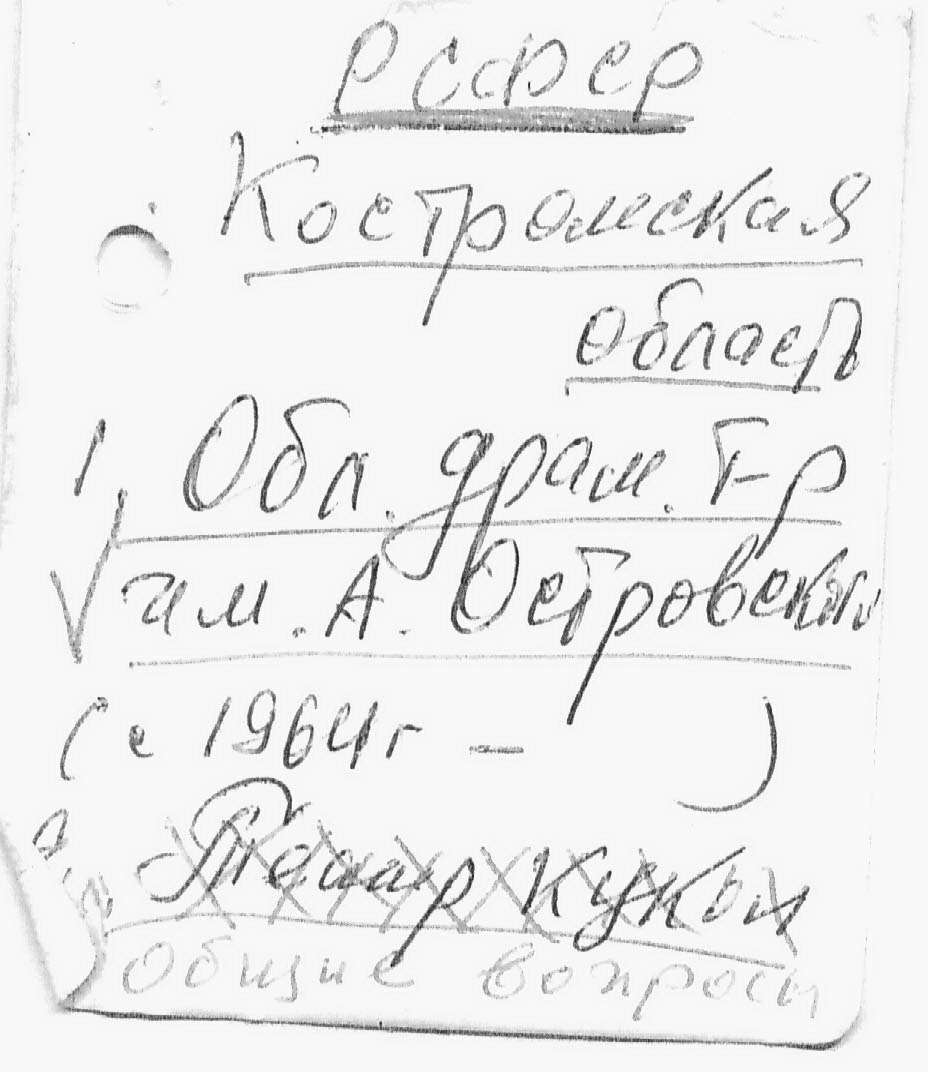 РСФСР
Костромская
область
1. Обл. драм. т-р
√ им. А. Островского
(с 1964 г – )
2. Театр Куклы
Общие вопросы